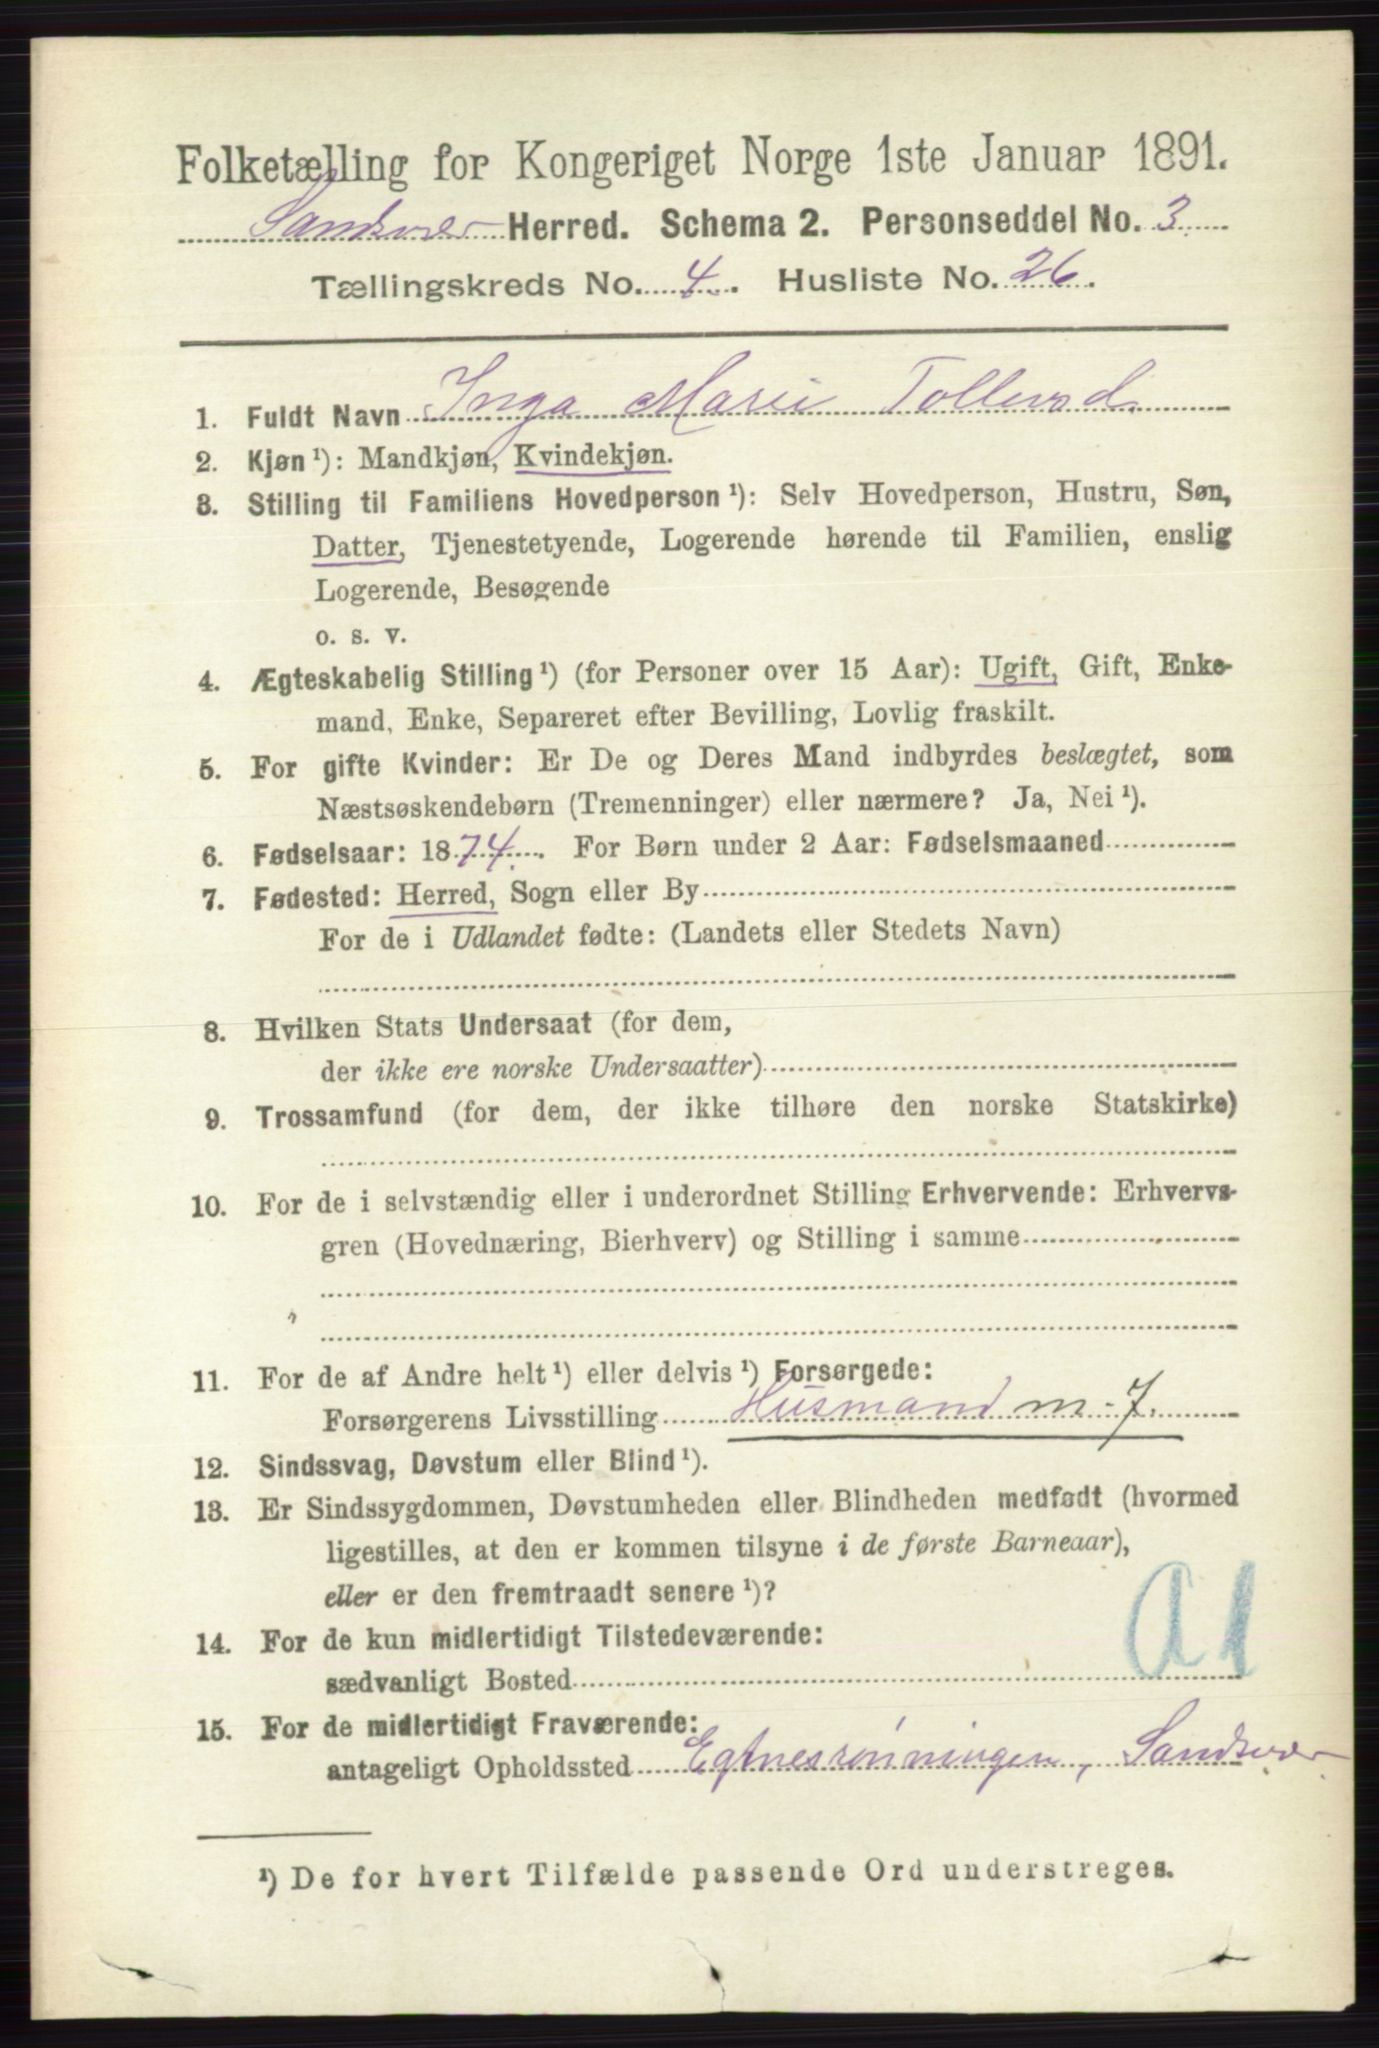 Folketælling for Kongeriget Norge 1ste Januar 1891.
Sandsvær Herred. Schema 2. Personseddel No. 3
Tællingskreds No. 4. Husliste No. 26.
1. Fuldt Navn Inga Marie Tollevsd.
2. Kjøn ¹): Mandkjøn, Kvindekjøn.
3. Stilling til Familiens Hovedperson ¹): Selv Hovedperson, Hustru, Søn,
Datter, Tjenestetyende, Logerende hørende til Familien, enslig
Logerende, Besøgende
o. s. v.
4. Ægteskabelig Stilling ¹) (for Personer over 15 Aar): Ugift, Gift, Enke-
mand, Enke, Separeret efter Bevilling, Lovlig fraskilt.
5. For gifte Kvinder: Er De og Deres Mand indbyrdes beslægtet, som
Næstsøskendebørn (Tremenninger) eller nærmere? Ja, Nei ¹).
6. Fødselsaar: 1874. For Børn under 2 Aar: Fødselsmaaned
7. Fødested: Herred, Sogn eller By
For de i Udlandet fødte: (Landets eller Stedets Navn)
8. Hvilken Stats Undersaat (for dem,
der ikke ere norske Undersaatter)
9. Trossamfund (for dem, der ikke tilhøre den norske Statskirke)
10. For de i selvstændig eller i underordnet Stilling Erhvervende: Erhvervs-
gren (Hovednæring, Bierhverv) og Stilling i samme
11. For de af Andre helt ¹) eller delvis ¹) Forsørgede:
Forsørgerens Livsstilling Husmand m. J.
12. Sindssvag, Døvstum eller Blind ¹).
13. Er Sindssygdommen, Døvstumheden eller Blindheden medfødt (hvormed
ligestilles, at den er kommen tilsyne i de første Barneaar),
eller er den fremtraadt senere ¹)?
14. For de kun midlertidigt Tilstedeværende:
sædvanligt Bosted
A1
15. For de midlertidigt Fraværende:
antageligt Opholdssted Eftnesrønningen, Sandsvær
¹) De for hvert Tilfælde passende Ord understreges.